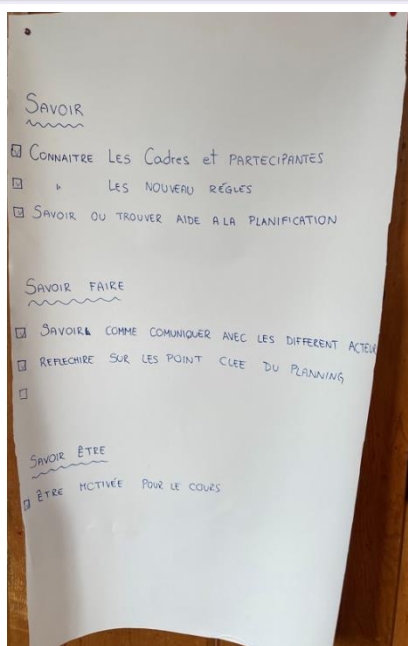 SAVOIR
CONNAITRE LES Cadres et PARTECIPANTES
" LES NOUVEAU RÉGLES
SAVOIR OU TROUVER AIDE A LA PLANIFICATION
SAVOIR FAIRE
SAVOIR COMME COMUNIQUER AVEC LES DIFFERENT ACTEUR
REFLECHIRE SUR LES POINT CLEE DU PLANNING
SAVOIR ÊTRE
ÊTRE MOTIVÉE POUR LE COURS